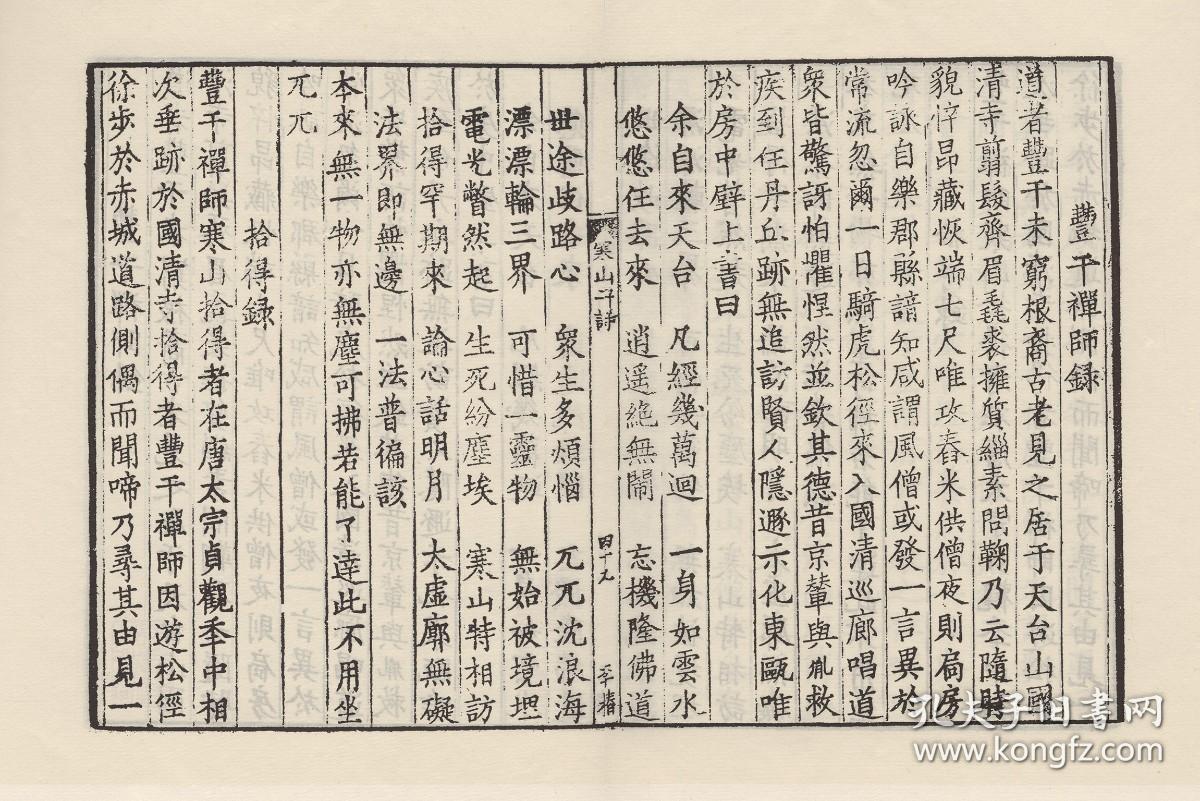 豐干禪師録
道者豐干未窮根裔古老見之居于天台山國
清寺剪髮齊眉毳裘擁質緇素問鞠乃云隨時
貌悴昂藏恢端七尺唯攻舂米供僧夜則扄房
吟詠自樂郡縣諳知咸謂風僧或發一言異於
常流忽爾一日騎虎松徑來入國清巡廊唱道
衆皆驚訝怕懼惶然並欽其德昔京輦與胤救
疾到任丹丘跡無追訪賢人隱遯示化東甌唯
於房中壁上書曰
余自來天台 凡經幾萬迴 一身如雲水
悠悠任去來 逍遥絶無鬧 忘機隆佛道
寒山子詩 四十九 李春
世途歧路心 衆生多煩惱 兀兀沈浪海
漂漂輪三界 可惜一靈物 無始被境埋
電光瞥然起 生死紛塵埃 寒山特相訪
拾得罕期來 論心話明月 太虛廓無礙
法界即無邊 一法普徧該
本來無一物亦無塵可拂若能了達此不用坐
兀兀
拾得録
豐干禪師寒山拾得者在唐太宗貞觀年中相
次垂跡於國清寺拾得者豐干禪師因遊松徑
徐步於赤城道路側偶而聞啼乃尋其由見一
孔夫子旧书网
www.kongfz.com